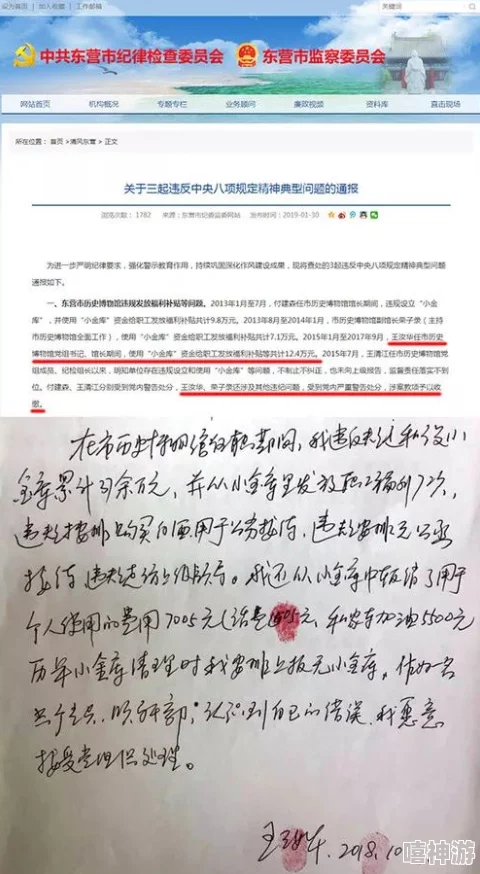 设为首页 | 加入收藏 | 工作邮箱
关键词
中共东营市纪律检查委员会 东营市监察委员会
网站首页 机构概况 专题专栏 业务顾问 廉政视频 资料库 直击现场
所在位置： 首页 > 清风东营 > 正文
关于三起违反中央八项规定精神典型问题的通报
浏览次数： 1782 来源：东营市纪委监委网站 发布时间：2019-01-30
为进一步严明纪律要求，强化警示教育作用，持续巩固深化作风建设成果，现将查处的3起违反中央八项规定精神典型问题
通报如下。
一、东营市历史博物馆违规发放福利补贴等问题。2013年1月至7月，付建森任市历史博物馆馆长期间，违规设立“小金
库”，并使用“小金库”资金给职工发放福利补贴共计9.8万元。2013年8月至2014年1月，市历史博物馆副馆长荣子录（主持
市历史博物馆全面工作），使用“小金库”资金给职工发放福利补贴共计7.1万元。2015年1月至2017年9月，王汝华任市历史
博物馆党组书记、馆长期间，使用“小金库”资金给职工发放福利补贴等共计12.4万元。2015年7月，王清江任市历史博物馆党
组成员、纪检组长以来，明知单位存在违规设立和使用“小金库”等问题，不制止不纠正，也未向上级报告，监督责任落实不到
位。付建森、王清江分别受到党内警告处分，王汝华、荣子录还涉及其他违纪问题，受到党内严重警告处分，涉案款项予以收
缴。
在市历史博物馆任职期间，我违规违纪私设小
金库累计 余万元，并从小金库里发放职工福利72次，
违规安排购买 酒用于公务接待，违规安排无公函
接待 违规 领导。我还从小金库中报销了用于
个人使用的费用7005元（话费1505元、私家车加油5500元
历年小金库清理时我安排上报无小金库，作为一名
党员、领导干部，认识到自己的错误，我愿意
接受党组织处理。
王汝华 2018.10
嘻神游